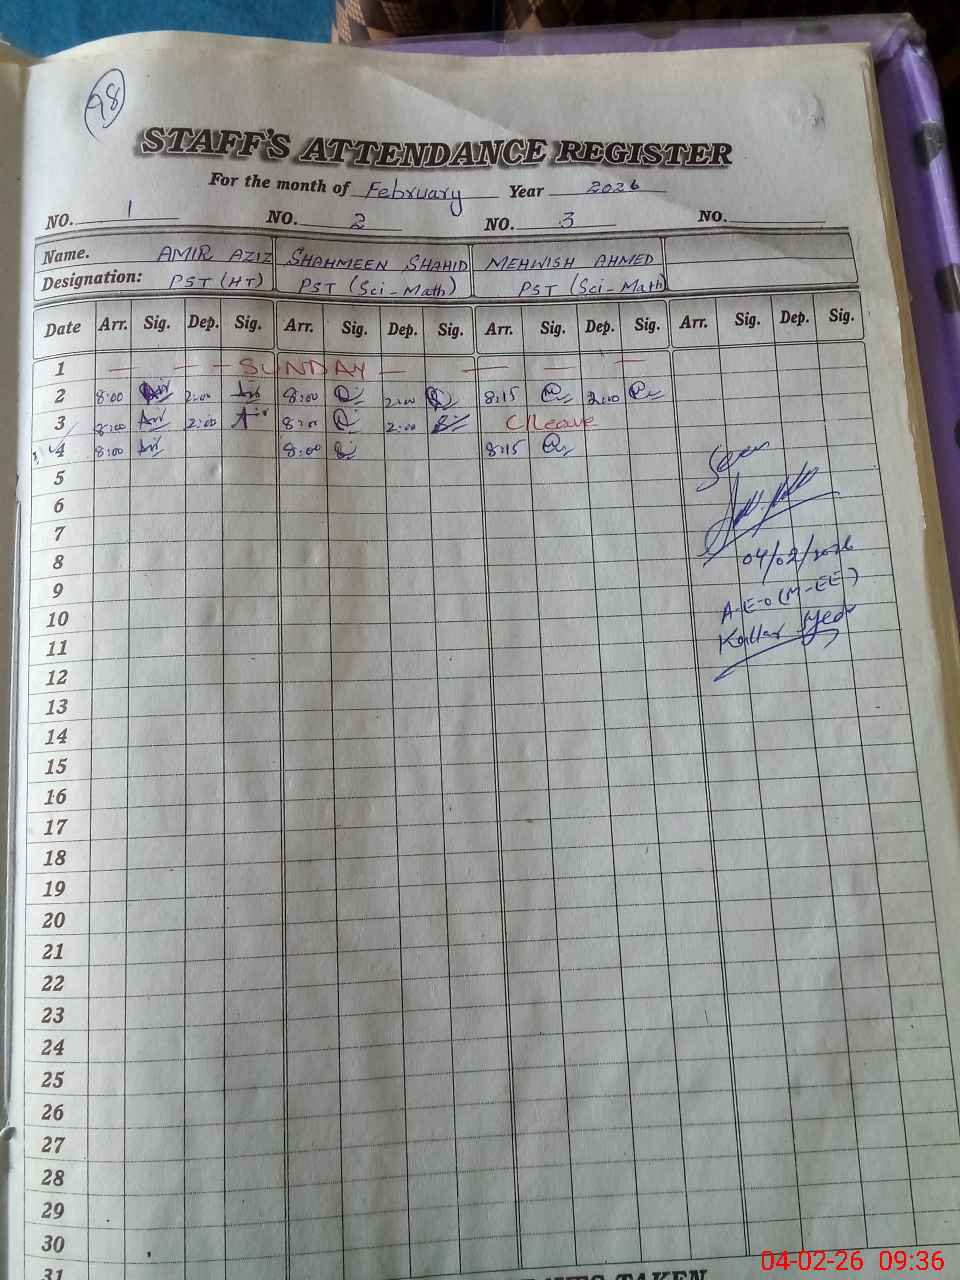 98
STAFF'S ATTENDANCE REGISTER
For the month of February Year 2026
NO. 1 NO. 2 NO. 3 NO.
Name. AMIR AZIZ SHAHMEEN SHAHID MEHWISH AHMED
Designation: PST (HT) PST (Sci-Math) PST (Sci-Math)
Date Arr. Sig. Dep. Sig. Arr. Sig. Dep. Sig. Arr. Sig. Dep. Sig. Arr. Sig. Dep. Sig.
1 — — — SUNDAY — — — —
2 8:00 2:00 8:00 2:00 8:15 2:00
3 8:00 2:00 8:00 2:00 C/Leave
4 8:00 8:00 8:15
Seen
5
6
7
8 04/02/2026
9 A-E-O (M-EE)
10 Kallar Syedan
11
12
13
14
15
16
17
18
19
20
21
22
23
24
25
26
27
28
29
30
31
TAKEN
04-02-26 09:36